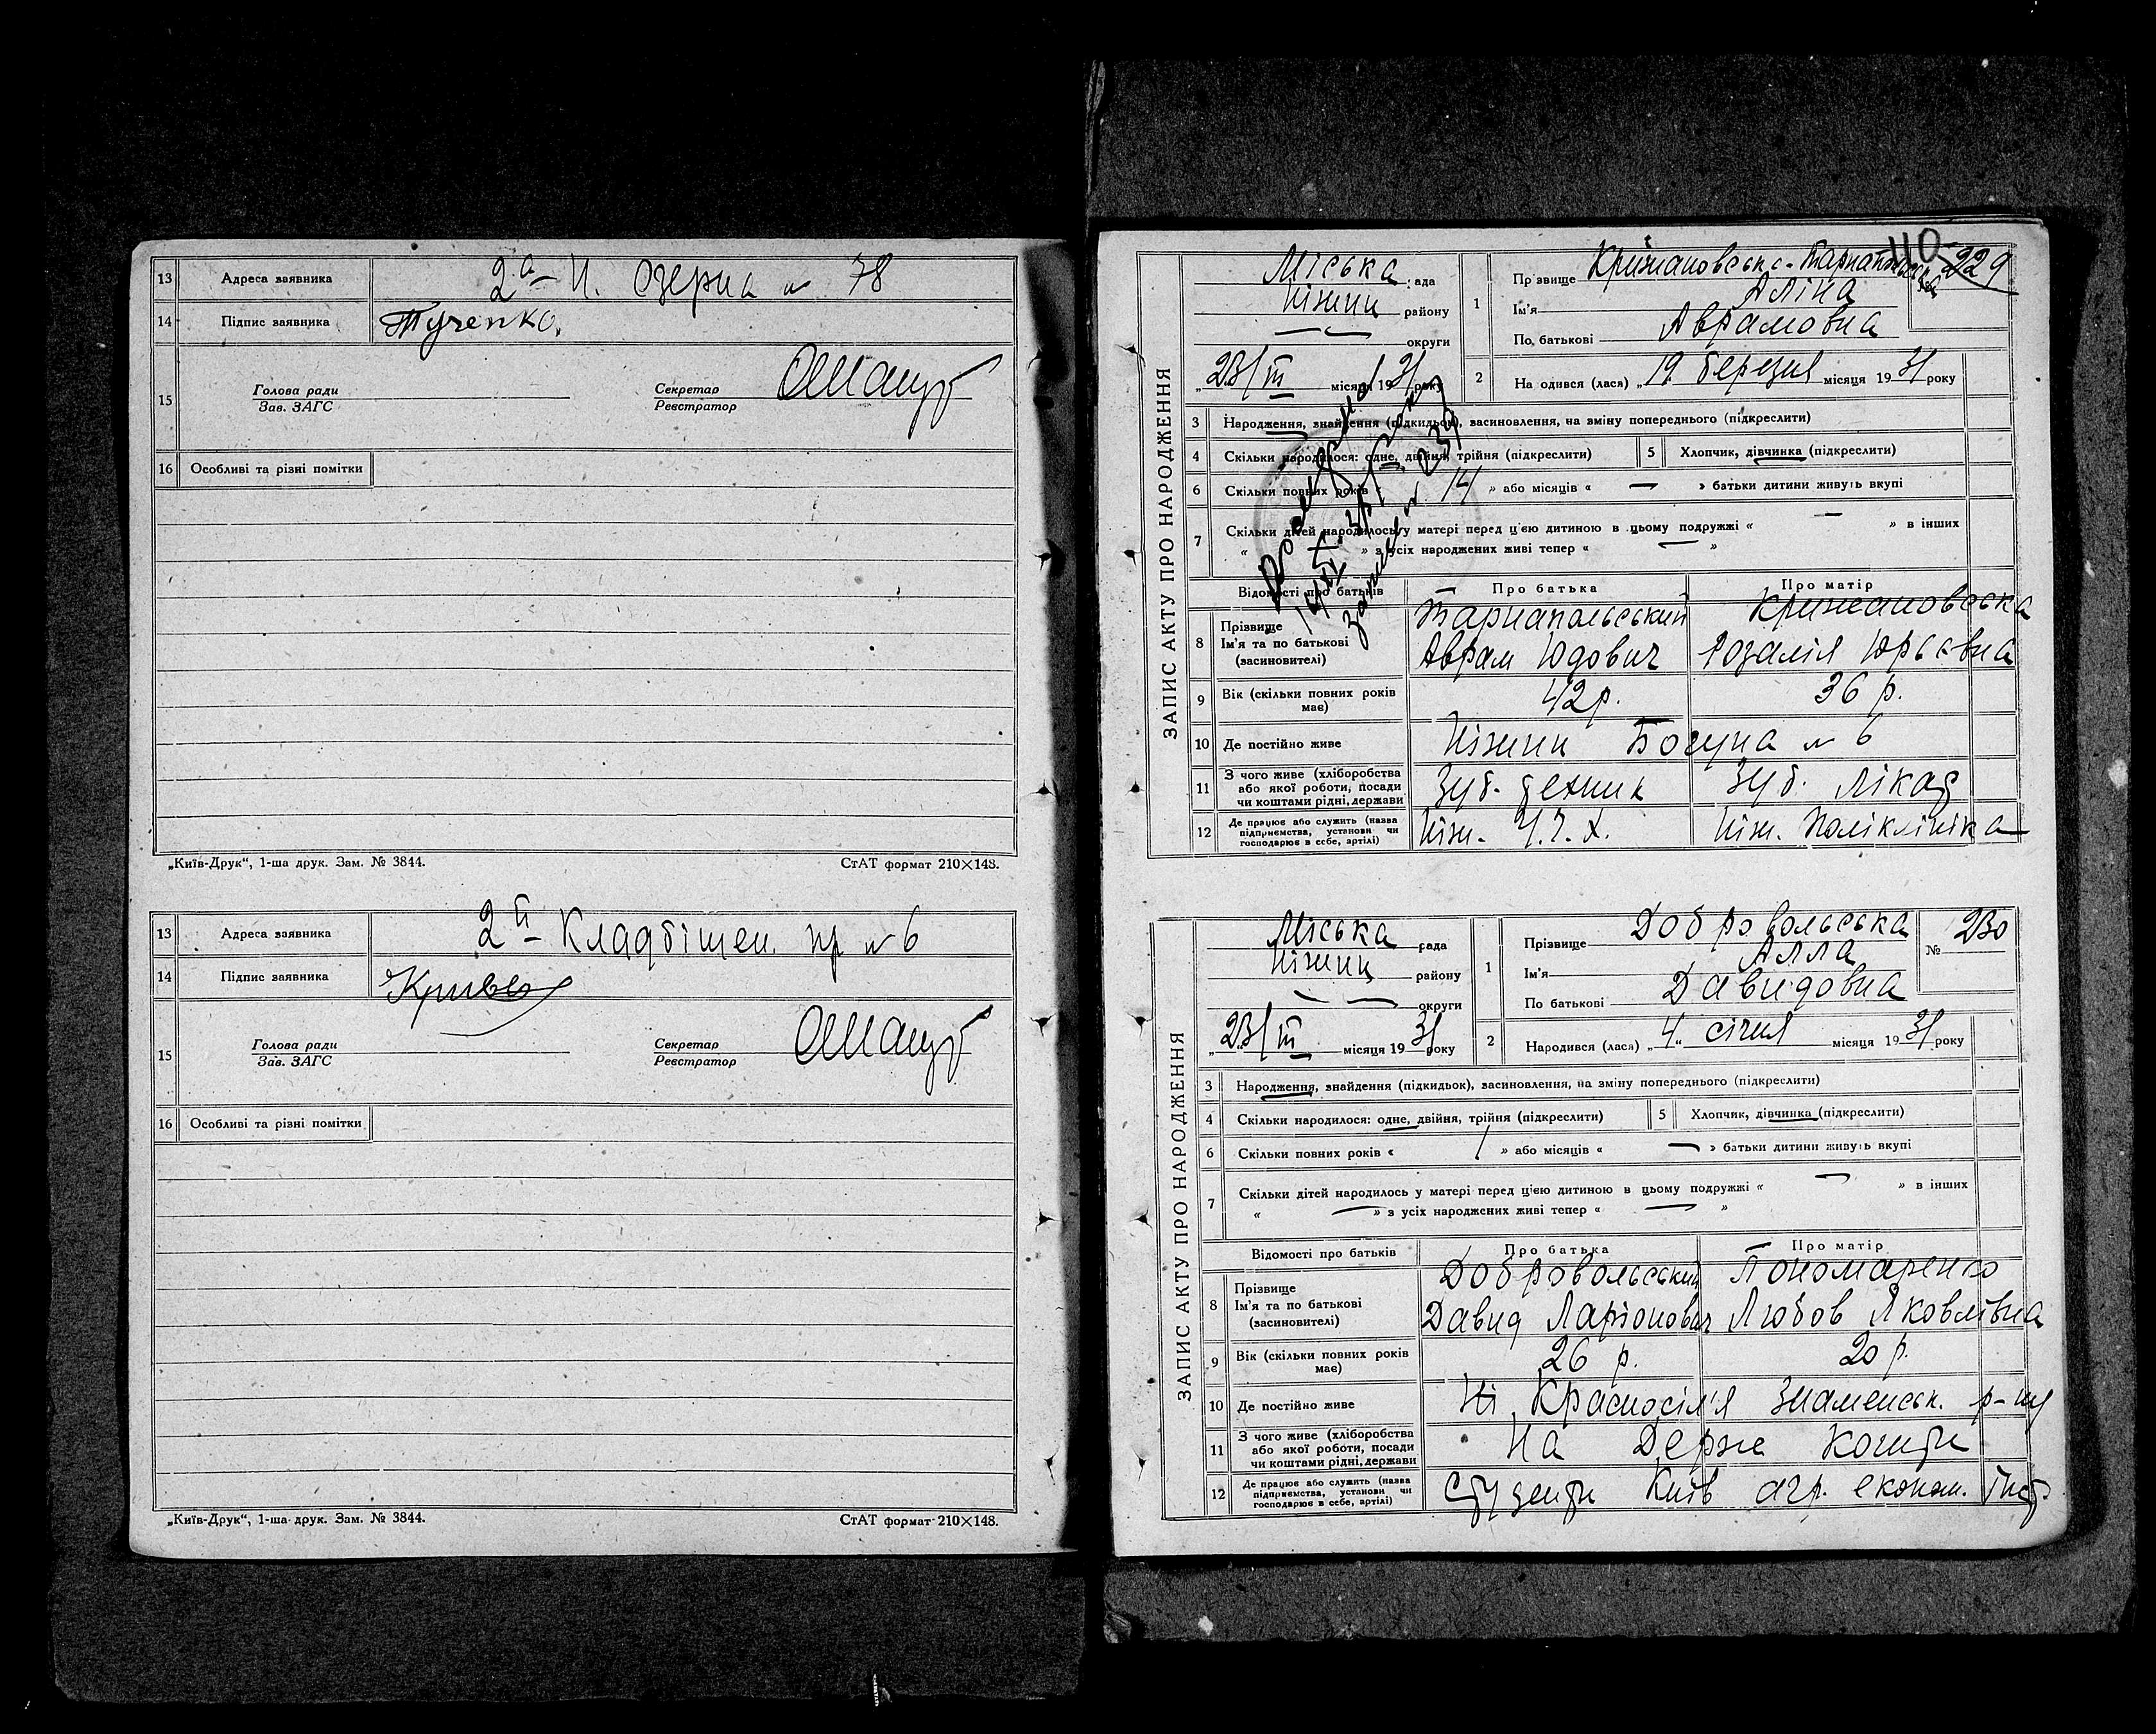 13 Адреса заявника 2а- Н. Озерна № 78
14 Підпис заявника Тученко.
15 Голова ради Секретар
Зав. ЗАГС Реєстратор
16 Особливі та різні помітки
„Київ-Друк“, 1-ша друк. Зам. № 3844. СтАТ формат 210×148.
13 Адреса заявника 2й- Кладбіщен. пр № 6
14 Підпис заявника
15 Голова ради Секретар
Зав. ЗАГС Реєстратор
16 Особливі та різні помітки
„Київ-Друк“, 1-ша друк. Зам. № 3844. СтАТ формат 210×148.
ЗАПИС АКТУ ПРО НАРОДЖЕННЯ
110
Міська рада
Ніжин району
— округи
„23/III місяця 1931 року
1 Прізвище Крижановська-Тарнапольська № 229
Ім'я Аліна
По батькові Аврамовна
2 Народився (лася) „19 березня місяця 1931 року
3 Народження, знайдення (підкидьок), засиновлення, на зміну попереднього (підкреслити)
4 Скільки народилося: одне, двійня, трійня (підкреслити) 5 Хлопчик, дівчинка (підкреслити)
6 Скільки повних років « 14 » або місяців « — » батьки дитини живуть вкупі
7 Скільки дітей народилось у матері перед цією дитиною в цьому подружжі « — » в інших
« » з усіх народжених живі тепер « — »
Відомості про батьків Про батька Про матір
8 Прізвище Тарнапольський Крижановська
Ім'я та по батькові Аврам Юдович Розалія Юрьєвна
(засиновителі)
9 Вік (скільки повних років має) 42 р. 36 р.
10 Де постійно живе Ніжин Богуна № 6
11 З чого живе (хліборобства або якої роботи, посади чи коштами рідні, держави Зуб. техник Зуб. лікар
12 Де працює або служить (назва підприємства, установи чи господарює в себе, артілі) Ніж. Ч.Г.Х. Ніж. Поліклініка
ЗАПИС АКТУ ПРО НАРОДЖЕННЯ
Міська рада
Ніжин району
— — округи
„23/III місяця 1931 року
1 Прізвище Добровольська № 230
Ім'я Алла
По батькові Давидовна
2 Народився (лася) „4“ січня місяця 1931 року
3 Народження, знайдення (підкидьок), засиновлення, на зміну попереднього (підкреслити)
4 Скільки народилося: одне, двійня, трійня (підкреслити) 5 Хлопчик, дівчинка (підкреслити)
6 Скільки повних років « 1 » або місяців « — » батьки дитини живуть вкупі
7 Скільки дітей народилось у матері перед цією дитиною в цьому подружжі « — » в інших
« — » з усіх народжених живі тепер « — »
Відомості про батьків Про батька Про матір
8 Прізвище Добровольський Пономаренко
Ім'я та по батькові Давид Ларіонович Любов Яковлівна
(засиновителі)
9 Вік (скільки повних років має) 26 р. 20 р.
10 Де постійно живе Красносіл'я Знаменськ. р-ну
11 З чого живе (хліборобства або якої роботи, посади чи коштами рідні, держави На Держ кошти
12 Де працює або служить (назва підприємства, установи чи господарює в себе, артілі) Студенти Київ агр. економ. Інст.